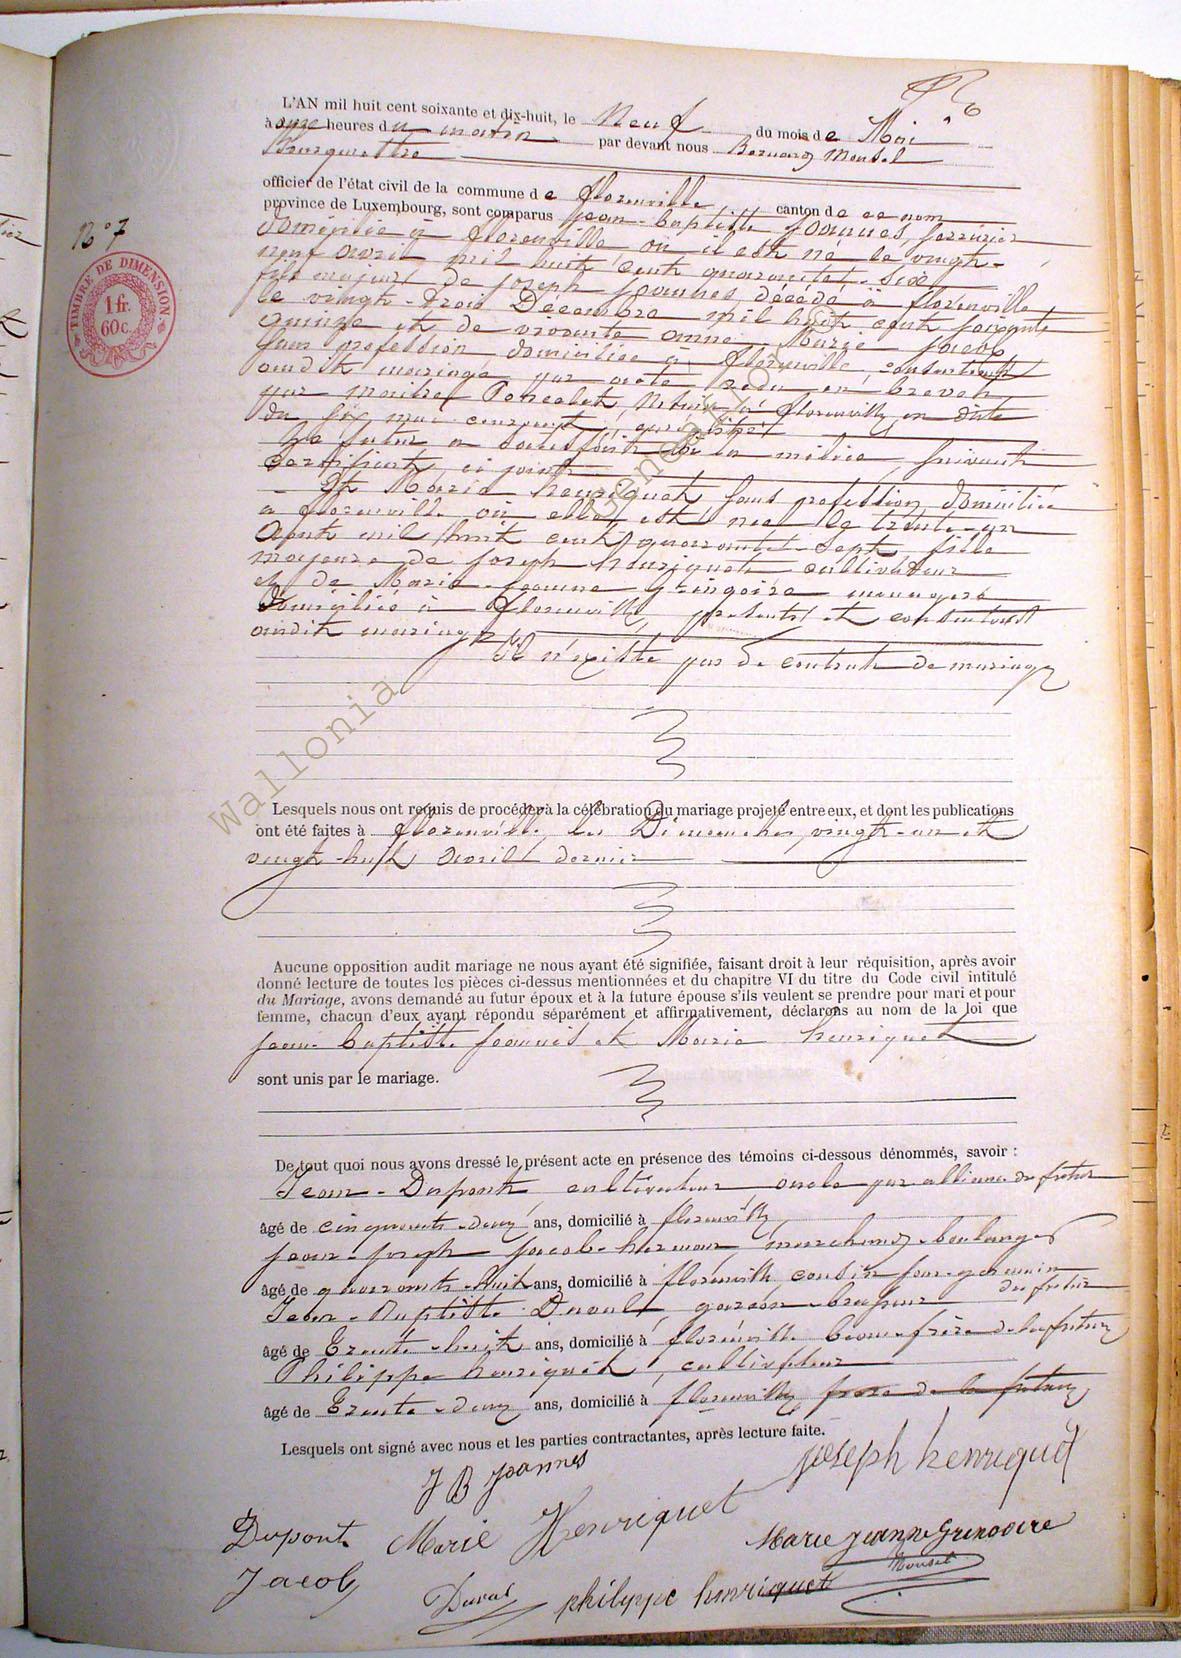 L'AN mil huit cent soixante et dix-huit, le Neuf du mois de Mai
à onze heures du matin par devant nous Bernard Mousel
Bourgmestre
officier de l'état civil de la commune de florenville, canton de ce nom
province de Luxembourg, sont comparus Jean-Baptiste Joannes, serrurier
N° 7
TIMBRE DE DIMENSION
1 fr.
60c.
domicilié à florenville où il est né le vingt-
neuf avril mil huit cent quarante-six
fils majeur de Joseph Joannes, décédé à florenville
le vingt-trois Décembre mil huit cent soixante
quinze et de vivante Marie Jacob
sans profession domiciliée à florenville, consentant
audit mariage par acte reçu en brevet
par maître Poncelet, Notaire à florenville, en date
du six mai courant, enregistré
Le futur a satisfait à la milice suivant
certificat ci joint
Et Marie henriquet sans profession, domiciliée
à florenville où elle est née le trente-un
Août mil huit cent quarante-sept, fille
majeure de Joseph henriquet cultivateur
et de Marie-Jeanne Gringoire ménagère
domiciliés à florenville, présents et consentant
audit mariage
Il n'existe pas de contrat de mariage
Wallonia Genealo
Lesquels nous ont requis de procéder à la célébration du mariage projeté entre eux, et dont les publications
ont été faites à florenville, les Dimanches vingt-un et
vingt-huit avril dernier
Aucune opposition audit mariage ne nous ayant été signifiée, faisant droit à leur réquisition, après avoir
donné lecture de toutes les pièces ci-dessus mentionnées et du chapitre VI du titre du Code civil intitulé
du Mariage, avons demandé au futur époux et à la future épouse s'ils veulent se prendre pour mari et pour
femme, chacun d'eux ayant répondu séparément et affirmativement, déclarons au nom de la loi que
Jean-Baptiste Joannes et Marie henriquet
sont unis par le mariage.
De tout quoi nous avons dressé le présent acte en présence des témoins ci-dessous dénommés, savoir :
Jean-Dupont, cultivateur oncle par alliance du futur
âgé de cinquante-deux ans, domicilié à florenville
Jean-Joseph Jacob-harmant, marchand-boulanger
âgé de quarante-huit ans, domicilié à florenville cousin sous-germain
du futur
Jean-Baptiste Duval, garçon-brasseur
âgé de trente-huit ans, domicilié à florenville beau-frère de la future
Philippe henriquet, cultivateur
âgé de trente-deux ans, domicilié à florenville, frère de la future
Lesquels ont signé avec nous et les parties contractantes, après lecture faite.
J B Joannes
Joseph henriquet
Dupont Marie Henriquet
Marie jeanne Gringoire
Mousel
Jacob
Duval philippe henriquet